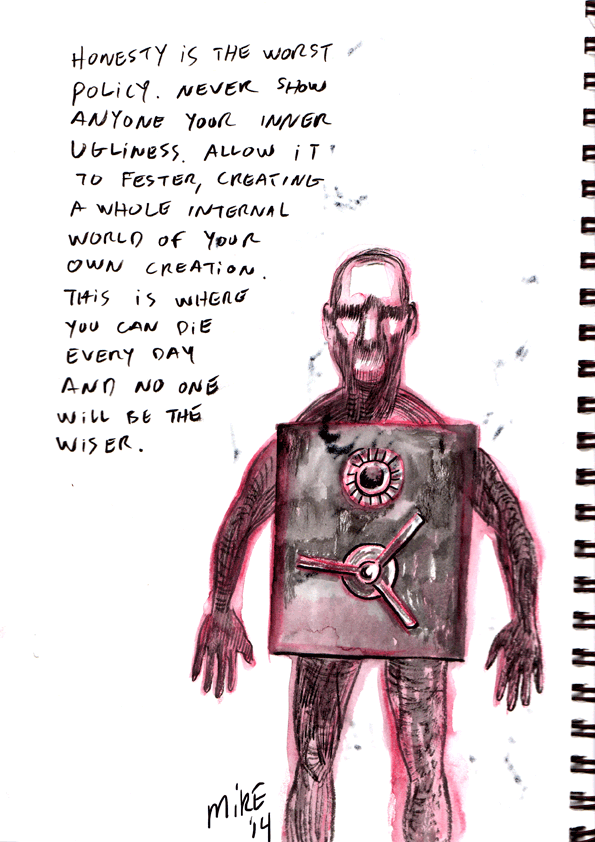 HONESTY IS THE WORST
POLICY. NEVER SHOW
ANYONE YOUR INNER
UGLINESS. ALLOW IT
TO FESTER, CREATING
A WHOLE INTERNAL
WORLD OF YOUR
OWN CREATION.
THIS IS WHERE
YOU CAN DIE
EVERY DAY
AND NO ONE
WILL BE THE
WISER.
MIKE
'14